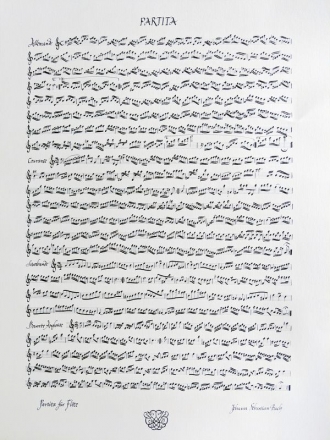 PARTITA
Allemande
Corrente
Sarabande
Bourrée Angloise
Partita for Flute
Johann Sebastian Bach